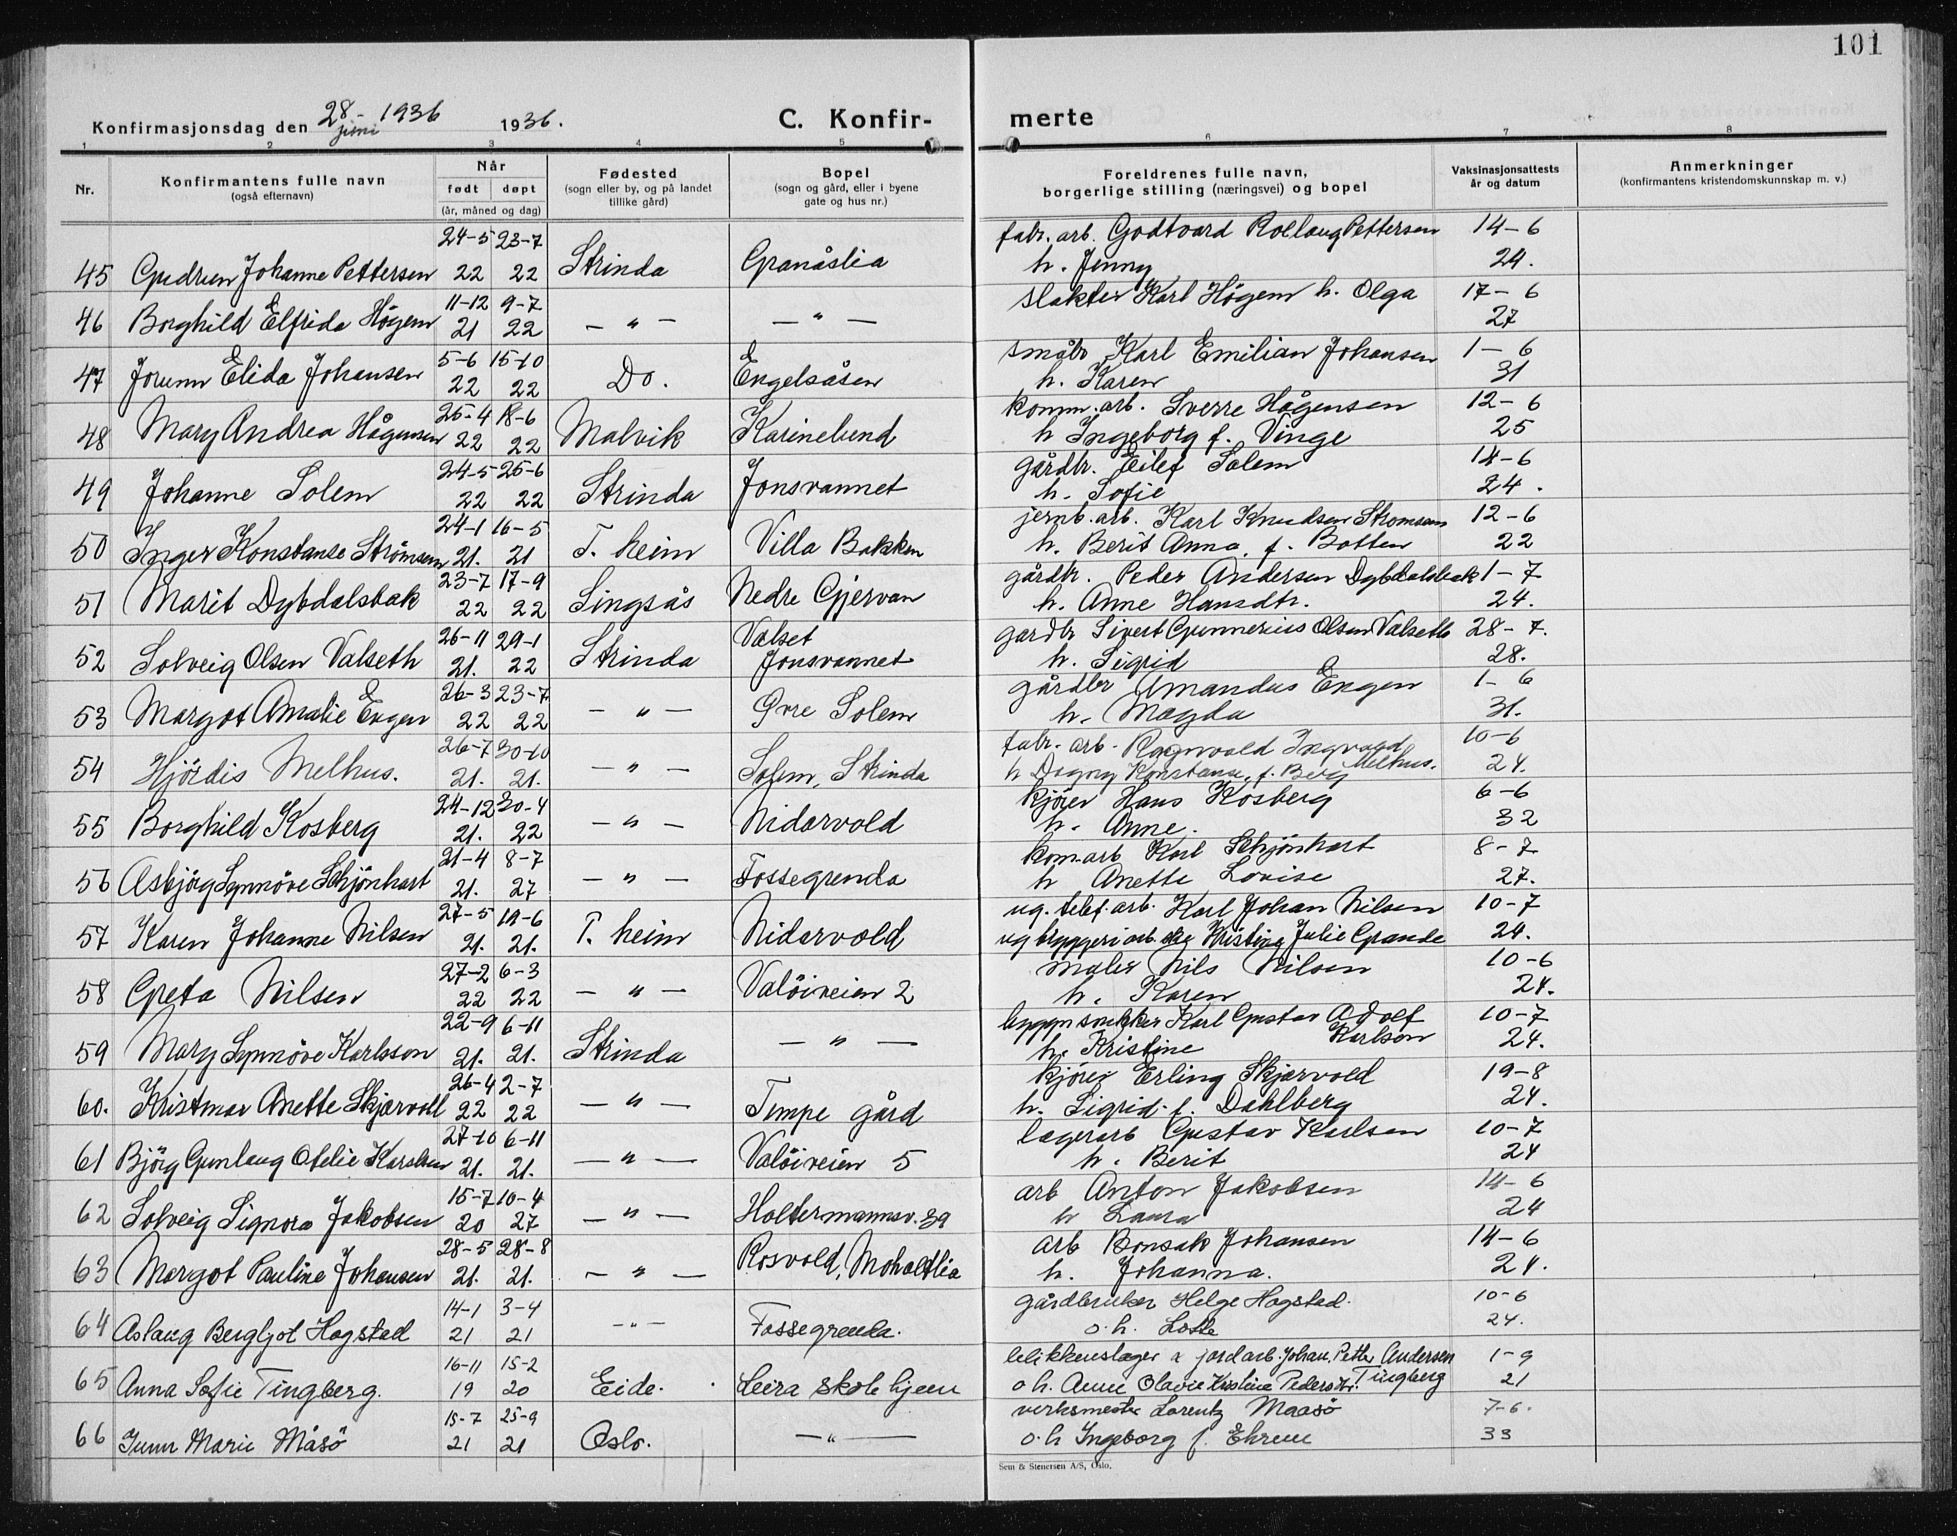 101
Konfirmasjonsdag den 28 - juni 1936 1936.
C. Konfir-merte
1 2 3 4 5 6 7 8
Nr. Konfirmantens fulle navn (også efternavn) Når født døpt (år, måned og dag) Fødested (sogn eller by, og på landet tillike gård) Bopel (sogn og gård, eller i byene gate og hus nr.) Foreldrenes fulle navn, borgerlige stilling (næringsvei) og bopel Vaksinasjonsattests år og datum Anmerkninger (konfirmantens kristendomskunnskap m. v.)
24-5 23-7 fabr. arb. Godtvard Rollaug Pettersen 14-6
45 Gudrun Johanne Pettersen 22 22 Strinda Granåslia h. Jenny 24.
11-12 9-7 slakter Karl Högem h. Olga 17-6
46 Borghild Elfrida Högem 21 22 - " - - " - 27
5-6 15-10 småbr Karl Emilian Johansen 1-6
47 Jorunn Elida Johansen 22 22 Do. Engelsåsen h. Karen 31
25-4 18-6 komm. arb. Sverre Hågensen 12-6
48 Mary Andrea Hågensen 22 22 Malvik Karinelund h Ingeborg f. Vinge 25
24-5 25-6 gårdbr. Eilef Solem 14-6
49 Johanne Solem 22 22 Strinda Jonsvannet h. Sofie 24.
24-1 16-5 jernb. arb. Karl Knudsen Strömsem 12-6
50 Inger Konstanse Strömsem 21. 21 T. heim Villa Bakken h. Berit Anna, f. Botten 22
23-7 17-9 gårdbr. Peder Andersen Dybdalsbak 1-7
51 Marit Dybdalsbak 22 22 Singsås Nedre Gjervan h. Anne Hansdtr. 24.
26-11 29-1 Valset gardbr Sivert Gunnerius Olsen Valseth 28-7.
52 Solveig Olsen Valseth 21. 22 Strinda Jonsvannet h. Sigrid 28.
26-3 23-7 gårdbr Amandus Engen 1-6
53 Margot Amalie Engen 22 22 - " - Øvre Solem h. Magda 31.
26-7 30-10 fabr. arb. Ragnvald Ingvald Melhus. 10-6
54 Hjördis Melhus. 21. 21. - " - Solem, Strinda h Dagny Konstanse, f. Berg 24.
24-12 30-4 kjörer Hans Kosberg 6-6
55 Borghild Kosberg 21. 22 - " - Nidarvold h. Anne. 32
21-4 8-7 kom arb Karl Schjönhart 8-7
56 Asbjög Synnöve Schjönhart 21. 27 - " - Fossegrenda h Anette Lovise 27.
27-5 19-6 ug. telef. arb. Karl Johan Nilsen 10-7
57 Karen Johanne Nilsen 21. 21. T. heim Nidarvold ug bryggeriarb.ske Kristine Julie Grande 24.
27-2 6-3 maler Nils Nilsen 10-6
58 Greta Nilsen 22 22 - " - Valöiveien 2 h. Karen 24.
22-9 6-11 byggn snekker Karl Gustav Adolf Karlson 10-7
59 Mary Synnöve Karlsson 21. 21. Strinda - " - h. Kristine 24.
26-4 2-7 kjörer Erling Skjærvold 19-8
60. Kristmar Anette Skjærvoll 22 22 - " - Tempe gård h. Sigrid f. Dahlberg 24.
27-10 6-11 lagerarb Gustav Karlsen 10-7
61 Björg Gunlaug Otelie Karslsen 21. 21. - " - Valöiveien 5 h. Berit 24
15-7 10-4 arb Anton Jakobsen 14-6
62 Solveig Signora Jakobsen 20 27 - " - Holtermannsv. 39 h Laura 24
28-5 28-8 arb Bonsak Johansen 14-6
63 Margot Pauline Johansen 21. 21. - " - Rosvold, Moholtlia h. Johanna. 24.
14-1 3-4 Gårdbruker Helge Hogstad. 10-6
64 Aslaug Bergljot Hogstad 21 21 - " - Fossegrenda. o. h. Lotte 24.
16-11 15-2 blikkenslager & jordarb. Johan Petter Andersen Tingberg 1-9
65 Anna Sofie Tingberg. 19 20 Eide. Leira skolehjem o h. Anne Olavie Kristine Pedersdtr. 21
15-7 25-9 verksmester Lorentz Maasö 7-6.
66 Gunn Marie Måsö 21 21 Oslo. - " - o. h Ingeborg f. Ehrem 33
Sem & Stenersen A/S, Oslo.